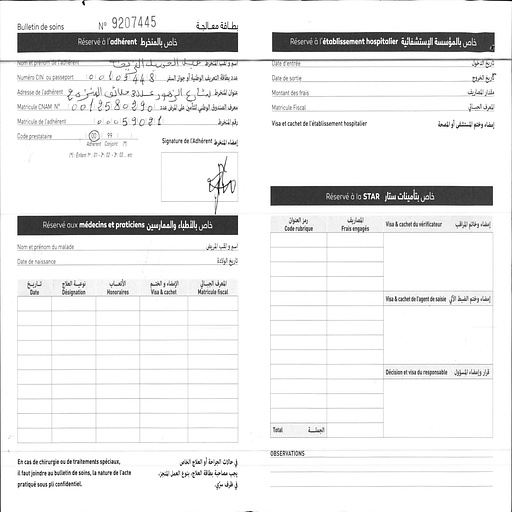 Bulletin de soins N° 9207445 بطاقة معالجة
Réservé à l'adhérent خاص بالمنخرط
Nom et prénom de l'adhérent اسم و لقب المنخرط
Numéro CIN ou passeport 00105448 عدد بطاقة التعريف الوطنية أو جواز السفر
Adresse de l'adhérent عنوان المنخرط
Matricule CNAM N° 001258029 معرف الصندوق الوطني للتأمين على المرض عدد
Matricule de l'adhérent 00059021 رقم المنخرط
Code prestataire 00 99 Signature de l'Adhérent إمضاء المنخرط
Adhérent Conjoint (*)
(*) Enfant 1er : 01 - 2 : 02 - 3 : 03 ... etc
Réservé aux médecins et praticiens خاص بالأطباء والممارسين
Nom et prénom du malade اسم و لقب المريض
Date de naissance تاريخ الولادة
تاريخ نوعية العلاج الأتعاب الإمضاء و الختم المعرف الجبائي
Date Désignation Honoraires Visa & cachet Matricule fiscal
En cas de chirurgie ou de traitements spéciaux,
il faut joindre au bulletin de soins, la nature de l'acte
pratiqué sous pli confidentiel.
في حالات الجراحة أو العلاج الخاص
يجب مصاحبة بطاقة العلاج، بنوع العمل المنجز،
في ظرف سري.
Réservé à l'établissement hospitalier خاص بالمؤسسة الإستشفائية
Date d'entrée تاريخ الدخول
Date de sortie تاريخ الخروج
Montant des frais مقدار المصاريف
Matricule Fiscal المعرف الجبائي
Visa et cachet de l'établissement hospitalier إمضاء وختم المستشفى أو المصحة
Réservé à la STAR خاص بتأمينات ستار
رمز العنوان المصاريف
Code rubrique Frais engagés
Visa & cachet du vérificateur إمضاء وختم المراقب
Visa & cachet de l'agent de saisie إمضاء وختم
Décision et visa du responsable قرار وإمضاء المسؤول
Total الجملة
OBSERVATIONS